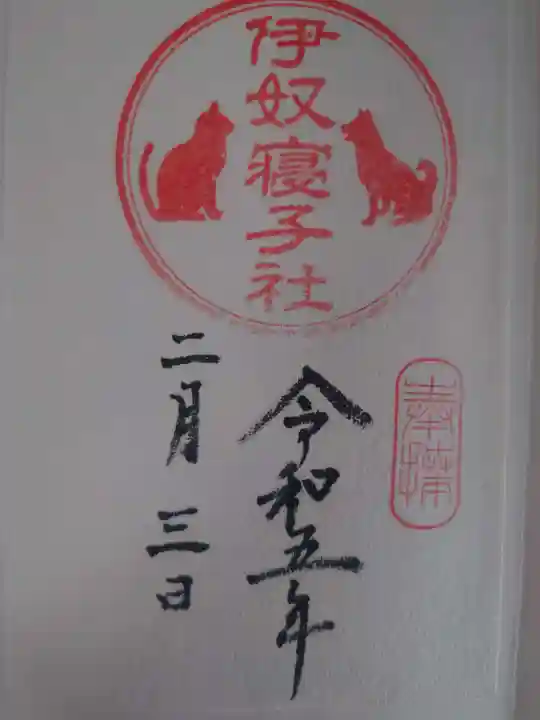 伊奴寝子社
奉拝
令和五年
二月三日